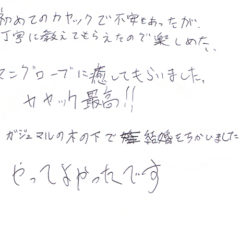 初めてのカヤックで不安もあったが、
丁寧に教えてもらえたので楽しめた。
マングローブに癒してもらいました。
カヤック最高!!
ガジュマルの木の下で結婚をちかいました
やってよかったです